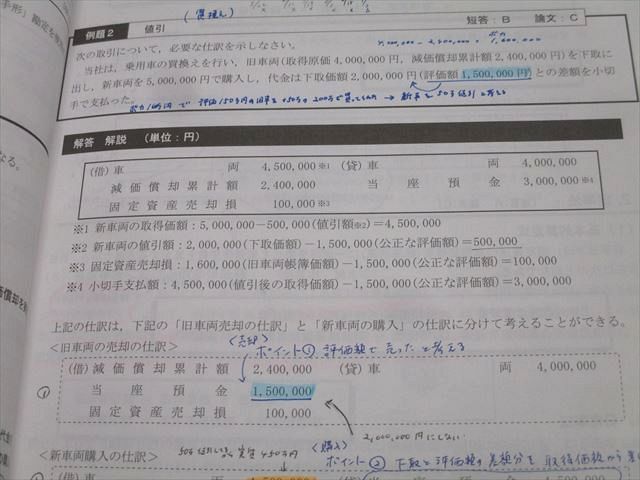 手形」勘定を
(買換え)
例題2 値引 短答:B 論文:C
次の取引について,必要な仕訳を示しなさい。
当社は,乗用車の買換えを行い,旧車両(取得原価 4,000,000円,減価償却累計額 2,400,000円)を下取に
出し,新車両を 5,000,000円で購入し,代金は下取価額 2,000,000円(評価額 1,500,000円)との差額を小切
手で支払った。
解答 解説 (単位:円)
(借) 車 両 4,500,000 ※1 (貸) 車 両 4,000,000
減価償却累計額 2,400,000 当座預金 3,000,000 ※4
固定資産売却損 100,000 ※3
※1 新車両の取得価額:5,000,000-500,000(値引額※2)=4,500,000
※2 新車両の値引額:2,000,000(下取価額)-1,500,000(公正な評価額)=500,000
※3 固定資産売却損:1,600,000(旧車両帳簿価額)-1,500,000(公正な評価額)=100,000
※4 小切手支払額:4,500,000(値引後の取得価額)-1,500,000(公正な評価額)=3,000,000
上記の仕訳は,下記の「旧車両売却の仕訳」と「新車両の購入」の仕訳に分けて考えることができる。
<旧車両の売却の仕訳>
<売却>
ポイント① 評価額で売ったと考える
① (借) 減価償却累計額 2,400,000 (貸) 車 両 4,000,000
当座預金 1,500,000
固定資産売却損 100,000
2,000,000円にしない
<新車両購入の仕訳>
<購入>
ポイント② 下取と評価額の差額分を取得価額から